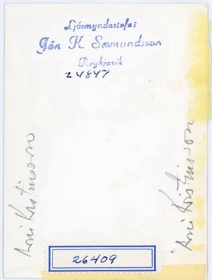 Ljósmyndastofa
Jón K Sæmundsson
Reykjavík
24847
Árni Kristinsson
Árni Kristinsson
26409